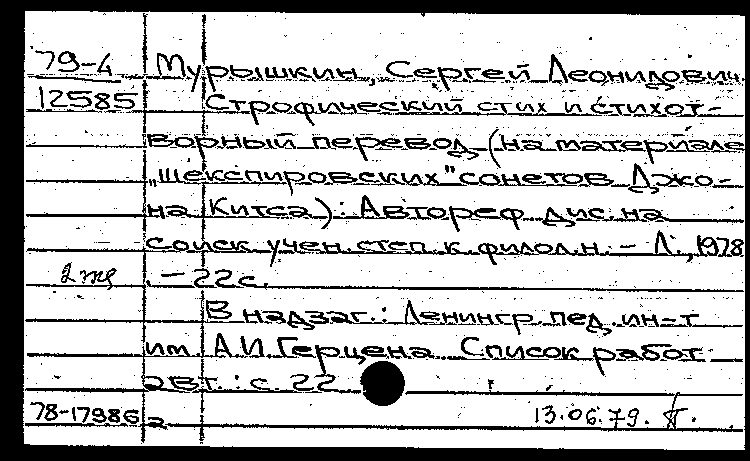 79-4 Мурышкин, Сергей Леонидович.
12585 Строфический стих и стихот-
ворный перевод (на материале
"шекспировских" сонетов Джо-
на Китса): Автореф. дис. на
соиск. учен. степ. к. филол. н. - Л., 1978
2 экз. - 22 с.
В надзаг.: Ленингр. пед. ин-т
им. А.И. Герцена. Список работ
авт.: с. 22
78-17986 а 13.06.79. П.